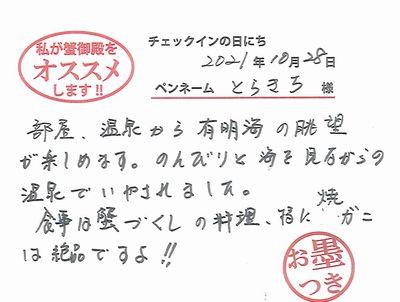 私が蟹御殿を
オススメ
します!!
チェックインの日にち
2021年10月28日
ペンネーム とらきち 様
部屋、温泉から有明海の眺望
が楽しめます。のんびりと海を見ながらの
温泉でいやされました。
食事は蟹づくしの料理、特に焼ガニ
は絶品ですよ!!
お墨
つき